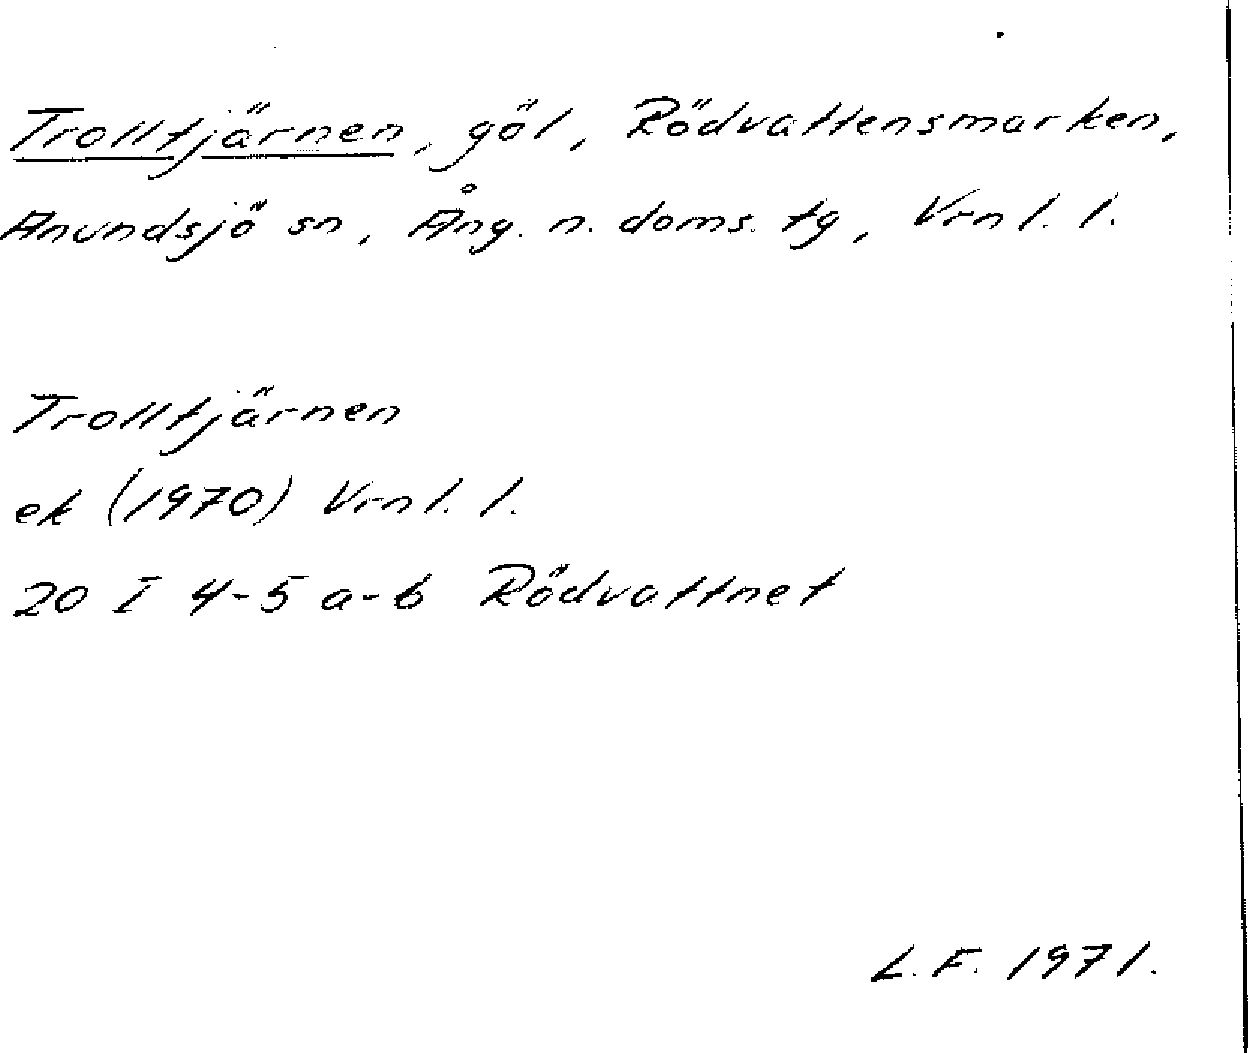 Trolltjärnen, göl, Rödvattensmarken,
Anundsjö sn, Ång. n. doms. tg, Vrnl. l.
Trolltjärnen
ek (1970) Vrnl. l.
20 I 4-5 a-b Rödvattnet
L.F. 1971.